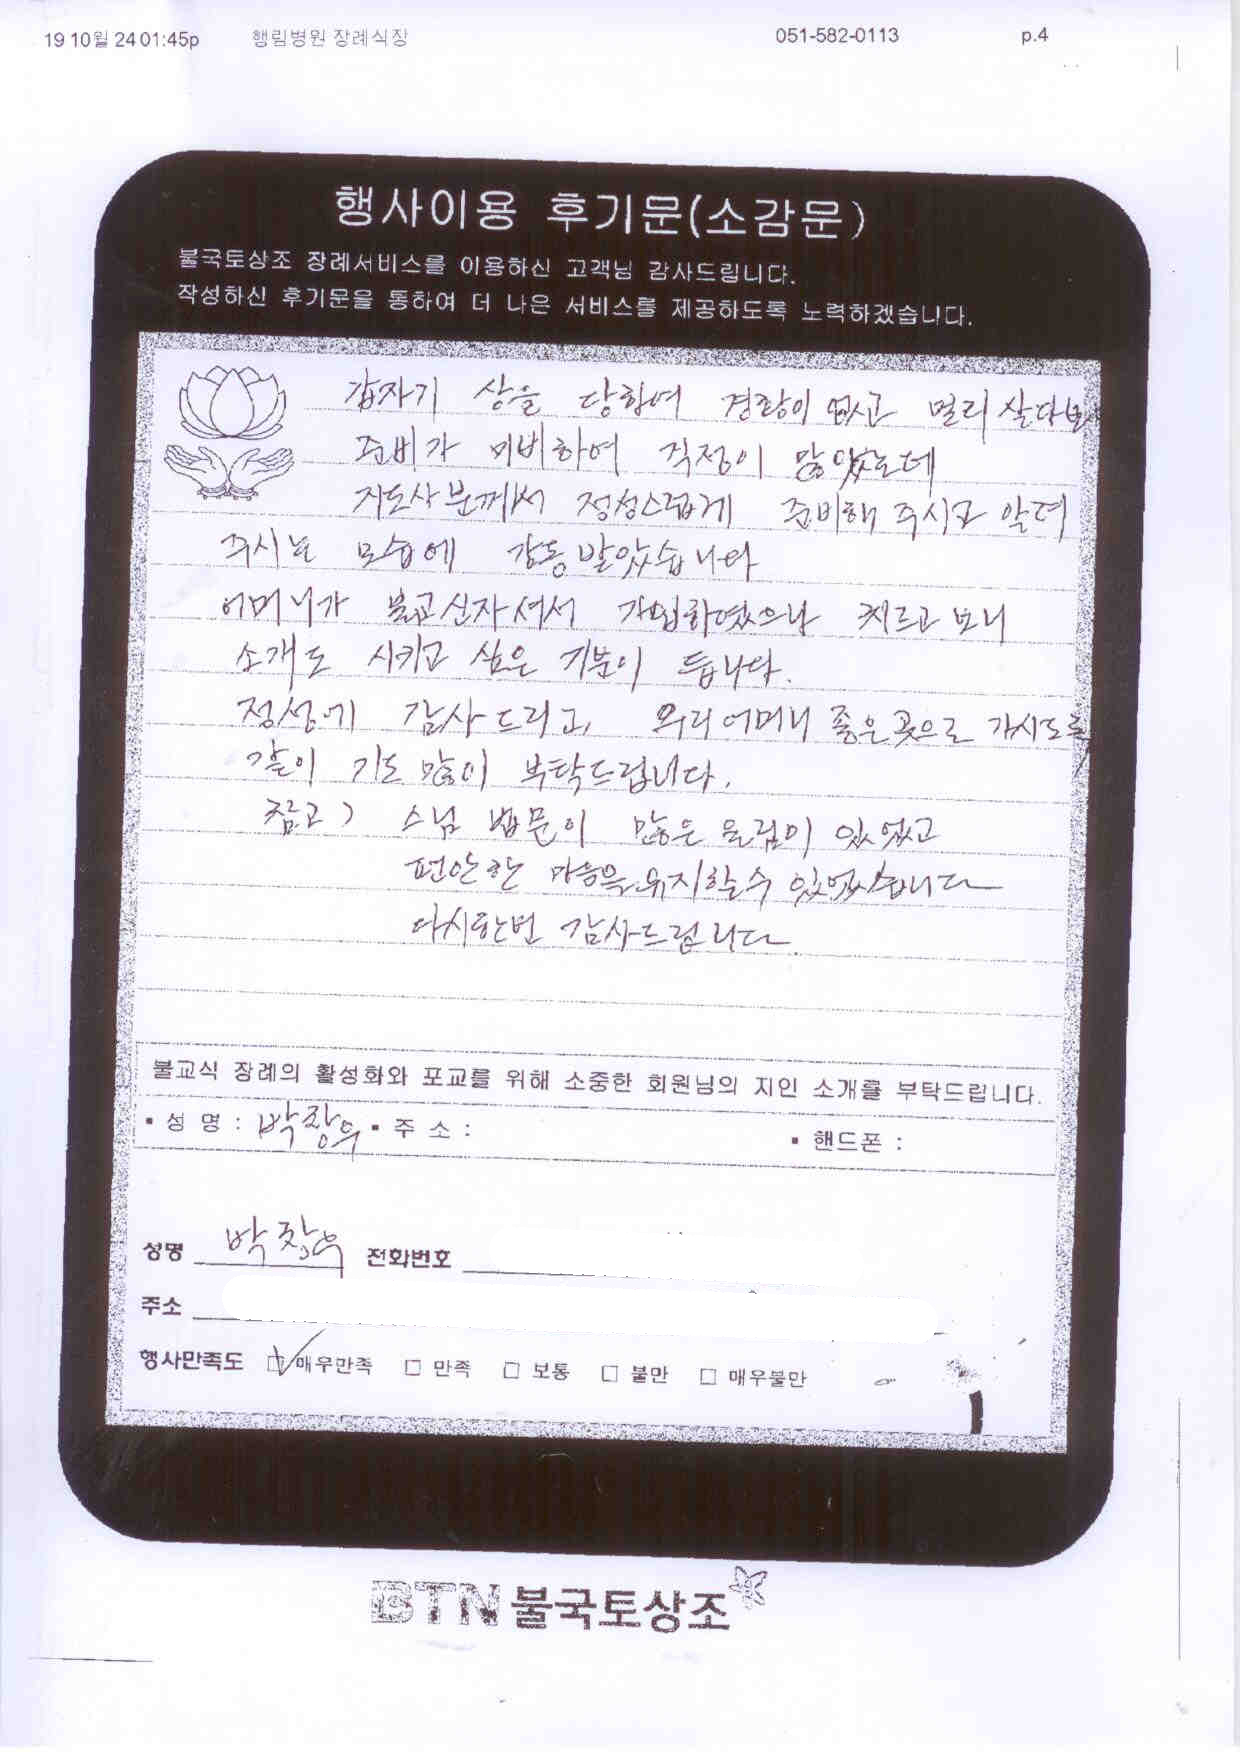 19 10월 24 01:45p 행림병원 장례식장 051-582-0113 p.4
행사이용 후기문(소감문)
불국토상조 장례서비스를 이용하신 고객님 감사드립니다.
작성하신 후기문을 통하여 더 나은 서비스를 제공하도록 노력하겠습니다.
갑자기 상을 당하여 경황이 없고 멀리 살다보니
준비가 미비하여 걱정이 많았는데
지도사분께서 정성스럽게 준비해 주시고 알려
주시는 모습에 감동 받았습니다
어머니가 불교신자셔서 가입하였으나 치르고 보니
소개도 시키고 싶은 기분이 듭니다.
정성에 감사드리고, 우리어머니 좋은곳으로 가시도록
같이 기도 많이 부탁드립니다.
참고) 스님 법문이 많은 울림이 있었고
편안한 마음을 유지할수 있었습니다
다시한번 감사드립니다.
불교식 장례의 활성화와 포교를 위해 소중한 회원님의 지인 소개를 부탁드립니다.
▪ 성 명 : 박창우 ▪ 주 소 : ▪ 핸드폰 :
성명 박창우 전화번호
주소
행사만족도 ☑ 매우만족 □ 만족 □ 보통 □ 불만 □ 매우불만
BTN불국토상조